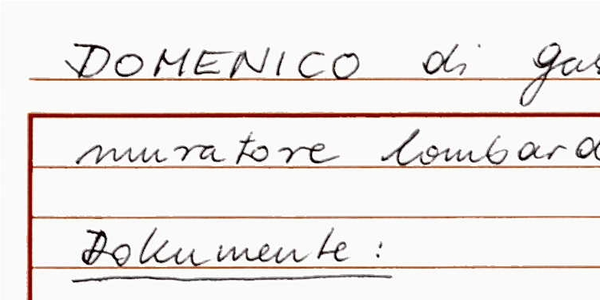 DOMENICO di gas
muratore lombard
Dokumente: